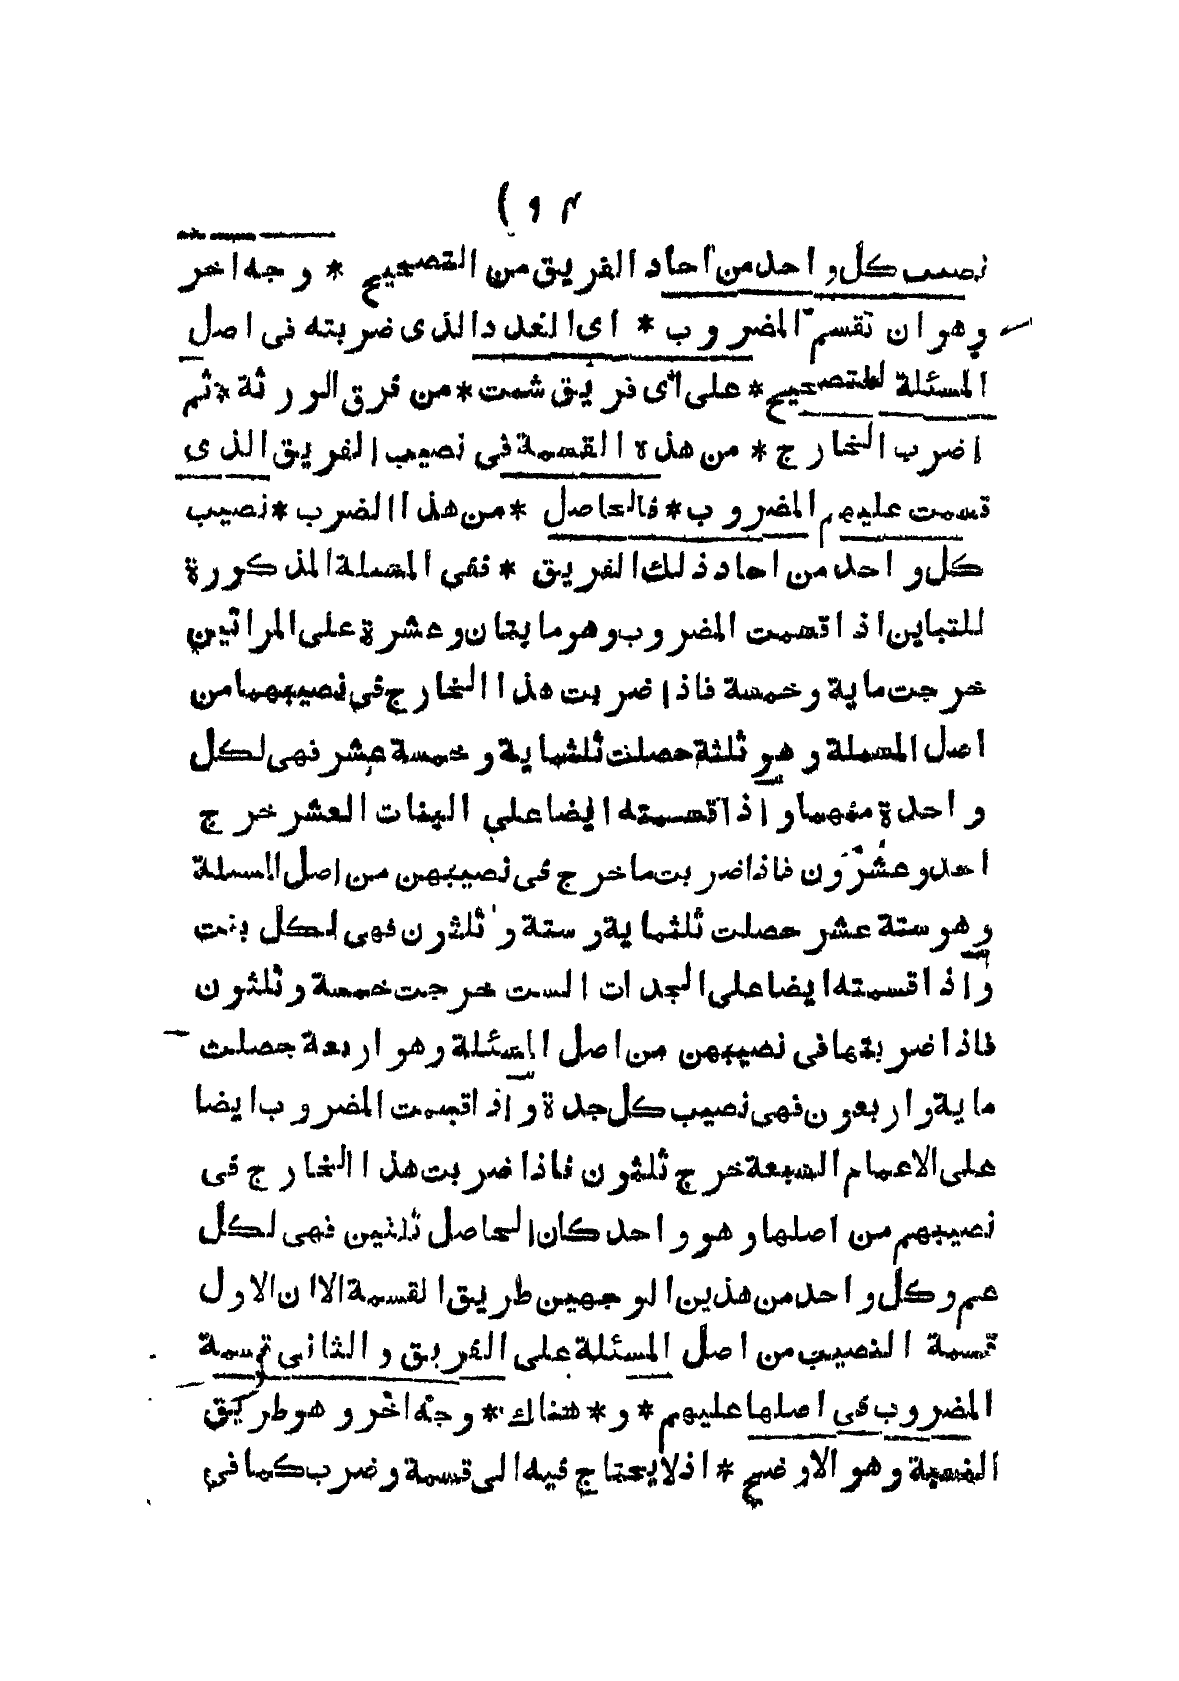 نصيب كل واحد من آحاد الفريق من التصحيح * وجه اخر
وهو ان تقسم المضروب * اى العدد الذى ضربته فى اصل
المسئلة للتصحيح * على اى فريق شئت * من فرق الورثة * ثم
اضرب الخارج * من هذه القسمة فى نصيب الفريق الذى
قسمت عليهم المضروب * فالحاصل * من هذا الضرب * نصيب
كل واحد من احاد ذلك الفريق * ففى المسئلة المذكورة
للتباين اذا قسمت المضروب وهو مايتان وعشرة على المراتين
خرجت ماية وخمسة فاذا ضربت هذا الخارج فى نصيبهما من
اصل المسئلة وهو ثلثة حصلت ثلثماية وخمسة عشر فهى لكل
واحدة منهما واذا قسمته ايضا على البنات العشر خرج
احد وعشرون فاذا ضربت ما خرج فى نصيبهن من اصل المسئلة
وهو ستة عشر حصلت ثلثماية وستة وثلثون فهى لكل بنت
واذا قسمته ايضا على الجدات الست خرجت خمسة وثلثون
فاذا ضربتها فى نصيبهن من اصل المسئلة وهو اربعة حصلت
ماية واربعون فهى نصيب كل جدة واذا قسمت المضروب ايضا
على الاعمام السبعة خرج ثلثون فاذا ضربت هذا الخارج فى
نصيبهم من اصلها وهو واحد كان الحاصل ثلثين فهى لكل
عم وكل واحد من هذين الوجهين طريق القسمة الا ان الاول
قسمة النصيب من اصل المسئلة على الفريق والثانى قسمة
المضروب فى اصلها عليهم * و * هناك * وجه اخر وهو طريق
النسبة وهو الاوضح * اذ لا يحتاج فيه الى قسمة وضرب كما فى